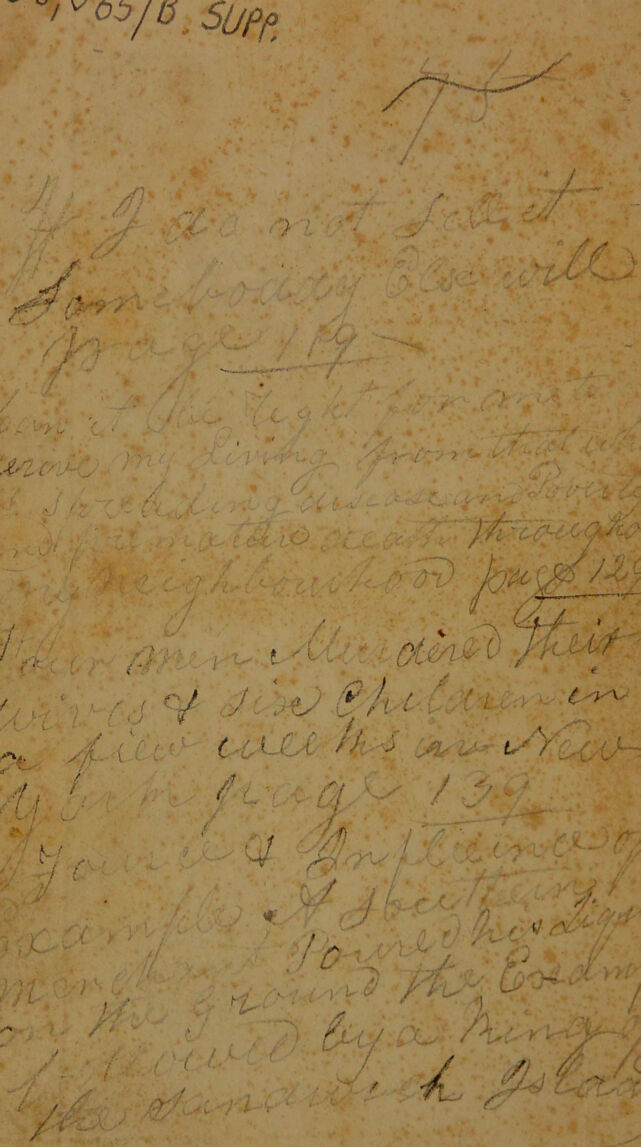 65/B SUPP.
75
If I do not sell it
Somebodday Else will
page 119
can it be right for me to
my Living from that
spreading disease and Poverty
premature death through
my neighbourhood page
Four men Murdered their
wives & six Children in
a few weeks in New
York page 139
Force & Influence of
Example A Southern
merchant Poured his
on the Ground the
followed by a King of
the Sandwich